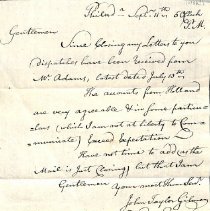 Philad.a Sept. 11th 5 oClock
P.M.
Gentlemen
Since Closing my Letters to you
dispatches have been received from
Mr. Adams, latest dated July 5th,
His accounts from Holland
are very agreeable & in some particu-
lars (which I am not at liberty to Com-
municate) Exceed Expectation
Have not time to add (as the
Mail is just Closing) but that I am
Gentlemen Your most Hum. Serv.
John Taylor Gilman